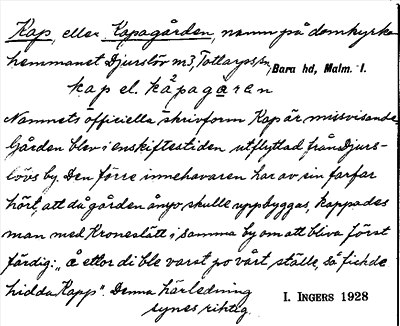 Kap, eller Kapagården, namn på domkyrko
hemmanet Djurslöv m3, Tottarps sn, Bara hd, Malm. l.
kap el. kàpagaren
Namnets officiella skrivform Kap är missvisande
Gården blev i enskiftestiden utflyttad från Djurs-
lövs by. Den förre innehavaren har av sin farfar
hört, att då gården ånyo skulle uppbyggas, kappades
man med Kroneslätt i samma by om att bliva först
färdig: „å ettor di ble varst po vårt ställe, så fick de
hidda Kapp". Denna härledning
synes riktig.
I. INGERS 1928